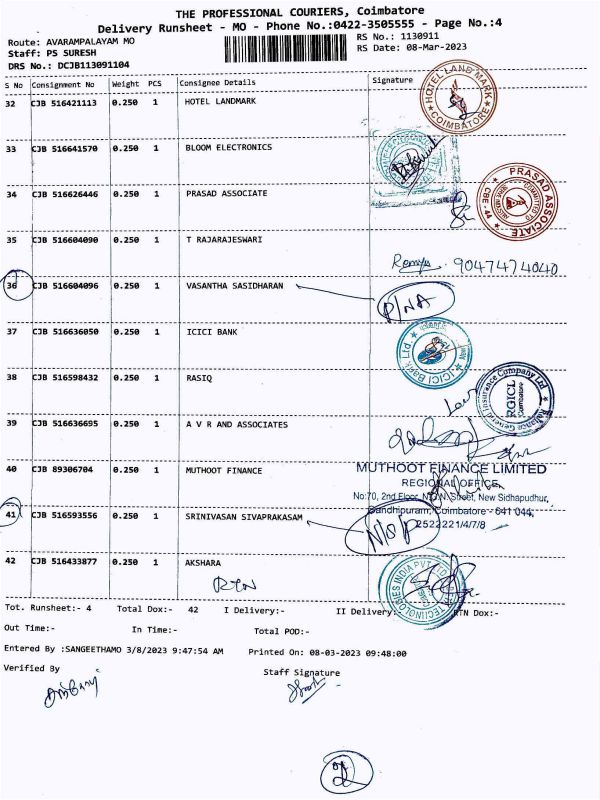 THE PROFESSIONAL COURIERS, Coimbatore
Delivery Runsheet - MO - Phone No.:0422-3505555 - Page No.:4
Route: AVARAMPALAYAM MO
RS No.: 1130911
Staff: PS SURESH
RS Date: 08-Mar-2023
DRS No.: DCJB113091104
S No Consignment No Weight PCS Consignee Details Signature
32 CJB 516421113 0.250 1 HOTEL LANDMARK
HOTEL LAND MARK
COIMBATORE
33 CJB 516641570 0.250 1 BLOOM ELECTRONICS
34 CJB 516626446 0.250 1 PRASAD ASSOCIATE
PRASAD ASSOCIATE
CBE - 44
35 CJB 516604090 0.250 1 T RAJARAJESWARI
Ramya 9047474040
36 CJB 516604096 0.250 1 VASANTHA SASIDHARAN
P/NA
37 CJB 516636050 0.250 1 ICICI BANK
ICICI Bank Ltd.
38 CJB 516598432 0.250 1 RASIQ
Reliance General Insurance Company Ltd
RGICL
Coimbatore
39 CJB 516636695 0.250 1 A V R AND ASSOCIATES
40 CJB 89306704 0.250 1 MUTHOOT FINANCE
MUTHOOT FINANCE LIMITED
REGIONAL OFFICE,
No:70, 2nd Floor, N.G.N. Street, New Sidhapudhur,
Gandhipuram, Coimbatore - 641 044,
2522221/4/7/8
41 CJB 516593556 0.250 1 SRINIVASAN SIVAPRAKASAM
N/S/P
42 CJB 516433877 0.250 1 AKSHARA
RTN
TECHNOLOGIES INDIA PVT LTD
Tot. Runsheet:- 4 Total Dox:- 42 I Delivery:- II Delivery:- RTN Dox:-
Out Time:- In Time:- Total POD:-
Entered By :SANGEETHAMO 3/8/2023 9:47:54 AM Printed On: 08-03-2023 09:48:00
Verified By
Staff Signature